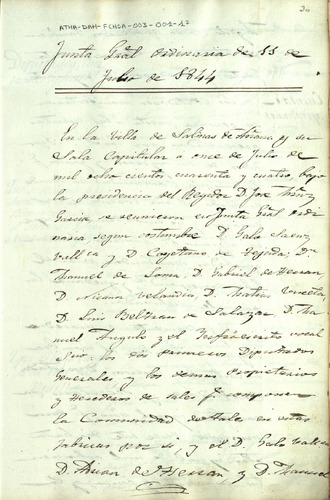 ATHA-DAH-FCHSA-003-001-17
Junta Gral Ordinaria de 11 de
Julio de 1844
En la Villa de Salinas de Añana y su
Sala Capitular á once de Julio de
mil ocho cientos cuarenta y cuatro, bajo
la presidencia del Regidor D. José
Garcia se reunieron en Junta Gral ordi
naria segun costumbre D. Galo Saenz
y D. Cayetano de Tejada; Dn
Manuel de Soma, D. Gabriel de Herran
D. Nicanor Velandia, D. Matias
D. Luis Beltran de Salazar D. Ma
nuel Angulo y el Infrascrito vocal
Srio: los dos primeros Diputados
Generales y los demas Propietarios
y Herederos de sales qe componen
la Comunidad de Sales en estas
fabricas por si, y el D. Galo
D. Juan de Herrán y D. Manuel